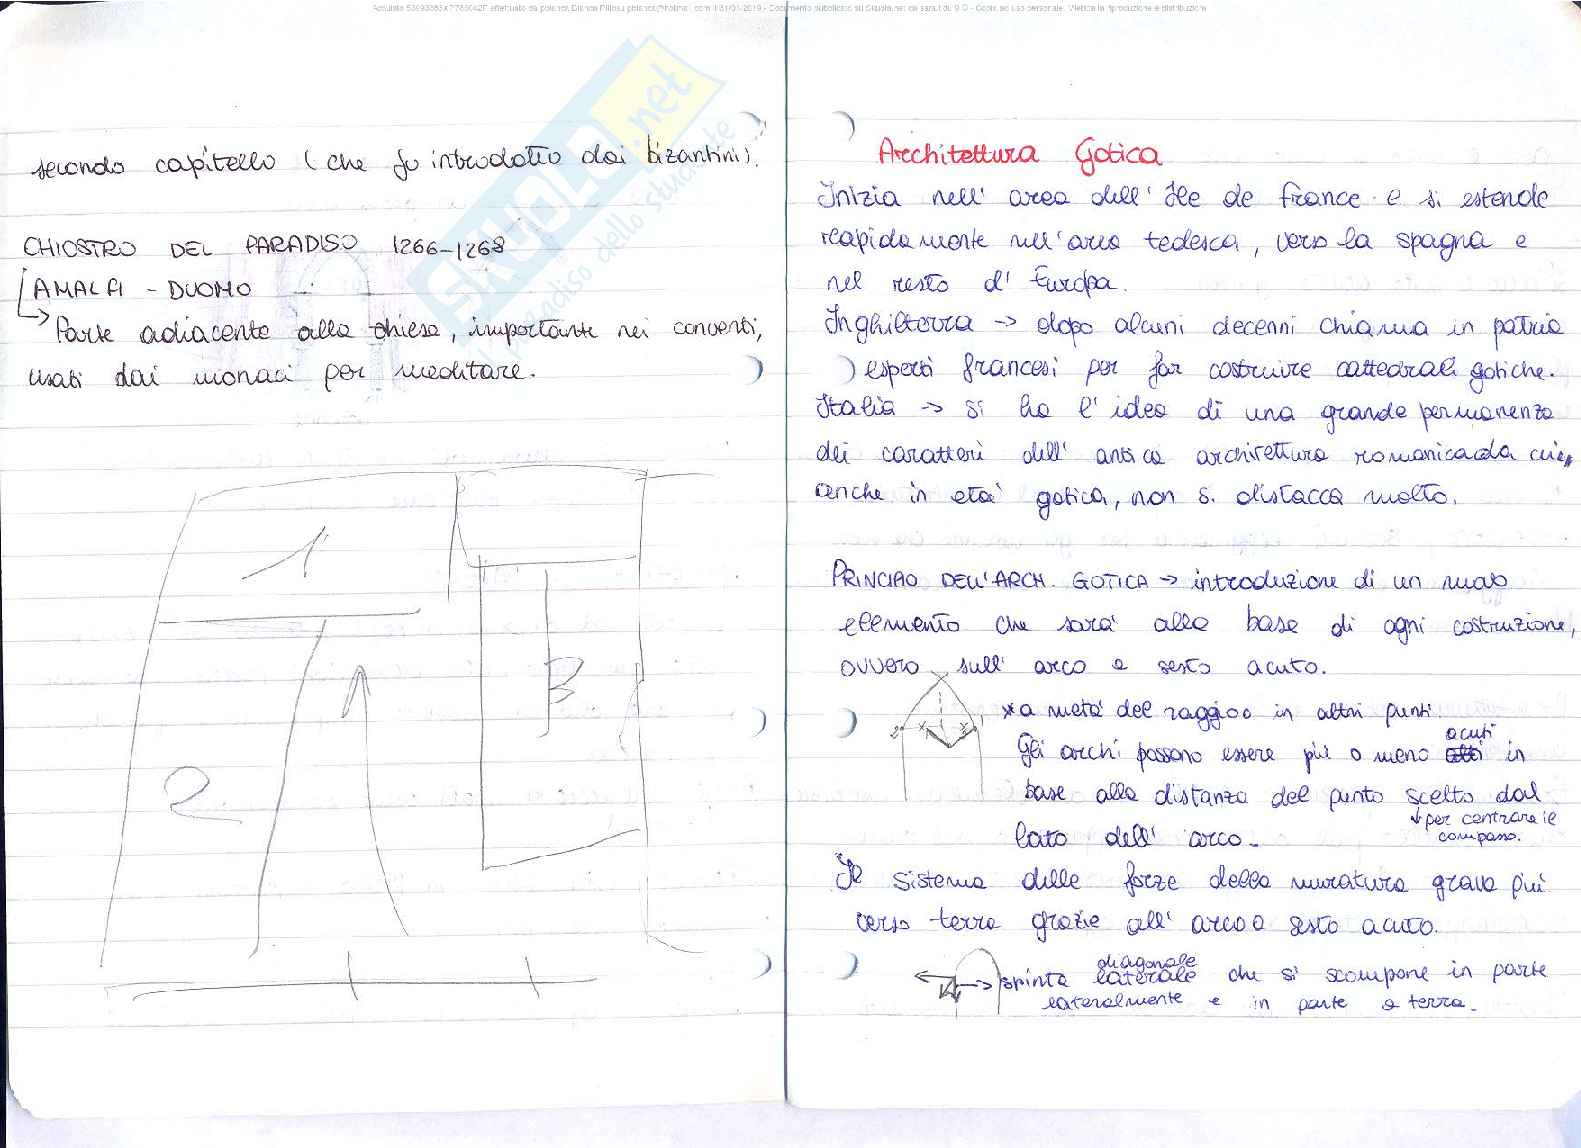 secondo capitello (che fu introdotto dai bizantini).
CHIOSTRO DEL PARADISO 1266-1268
AMALFI - DUOMO
→ Parte adiacente alla chiesa, importante nei conventi,
usati dai monaci per meditare.
1
2
B
SKUOLA.net
il paradiso dello studente
Architettura Gotica
Inizia nell'area dell'Ile de france e si estende
rapidamente nell'area tedesca, verso la spagna e
nel resto d'Europa.
Inghilterra → dopo alcuni decenni chiama in patria
esperti francesi per far costruire cattedrali gotiche.
Italia → si ha l'idea di una grande permanenza
dei caratteri dell'antica architettura romanica da cui,
anche in età gotica, non si distacca molto.
PRINCIPIO DELL'ARCH. GOTICA → introduzione di un nuovo
elemento che sarà alla base di ogni costruzione,
ovvero sull'arco a sesto acuto.
*a metà del raggio o in altri punti.
Gli archi possono essere più o meno acuti in
base alla distanza del punto scelto dal
↓ per centrare il
compasso.
lato dell'arco.
Il sistema delle forze della muratura grava più
verso terra grazie all'arco a sesto acuto.
→ spinta diagonale laterale che si scompone in parte
lateralmente e in parte a terra.